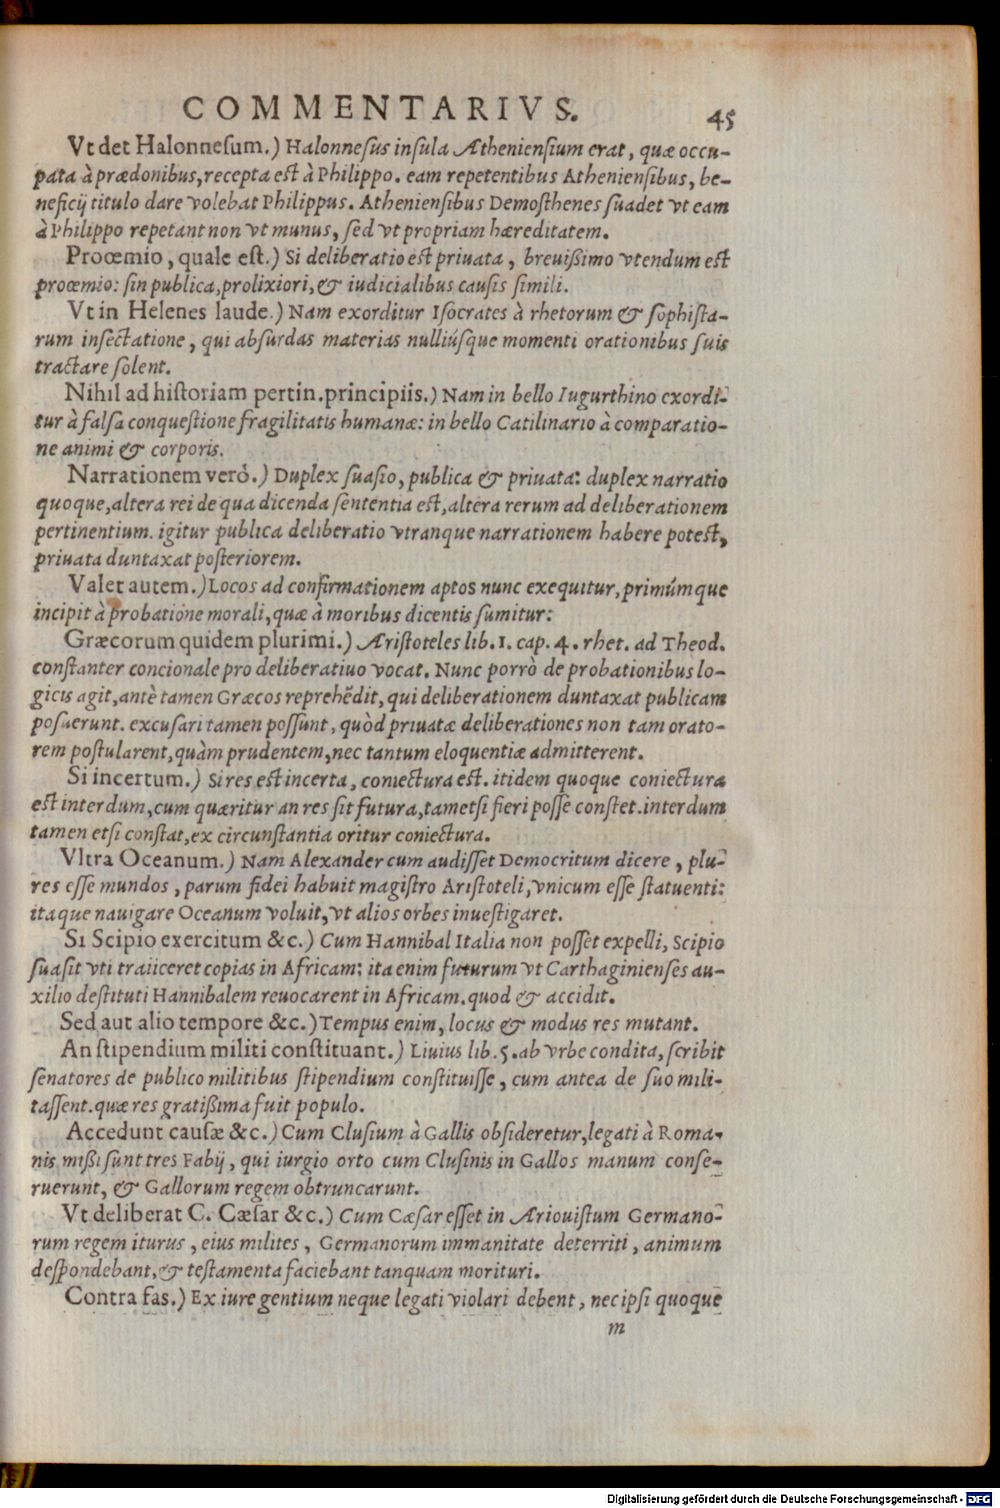 COMMENTARIVS. 45
Vt det Halonnesum.) Halonnesus insula Atheniensium erat, quæ occu-
pata à prædonibus, recepta est à Philippo. eam repetentibus Atheniensibus, be-
neficij titulo dare volebat Philippus. Atheniensibus Demosthenes suadet vt eam
à Philippo repetant non vt munus, sed vt propriam hæreditatem.
Proœmio, quale est.) Si deliberatio est priuata, breuißimo vtendum est
proœmio: sin publica, prolixiori, & iudicialibus causis simili.
Vt in Helenes laude.) Nam exorditur Isocrates à rhetorum & sophista-
rum insectatione, qui absurdas materias nulliúsque momenti orationibus suis
tractare solent.
Nihil ad historiam pertin. principiis.) Nam in bello Iugurthino exordi-
tur à falsa conquestione fragilitatis humanæ: in bello Catilinario à comparatio-
ne animi & corporis.
Narrationem verò.) Duplex suasio, publica & priuata: duplex narratio
quoque, altera rei de qua dicenda sententia est, altera rerum ad deliberationem
pertinentium. igitur publica deliberatio vtranque narrationem habere potest,
priuata duntaxat posteriorem.
Valet autem.) Locos ad confirmationem aptos nunc exequitur, primúmque
incipit à probatione morali, quæ à moribus dicentis sumitur:
Græcorum quidem plurimi.) Aristoteles lib. 1. cap. 4. rhet. ad Theod.
constanter concionale pro deliberatiuo vocat. Nunc porrò de probationibus lo-
gicis agit, antè tamen Græcos reprehẽdit, qui deliberationem duntaxat publicam
posuerunt. excusari tamen possunt, quòd priuatæ deliberationes non tam orato-
rem postularent, quàm prudentem, nec tantum eloquentiæ admitterent.
Si incertum.) Si res est incerta, coniectura est. itidem quoque coniectura
est interdum, cum quæritur an res sit futura, tametsi fieri posse constet. interdum
tamen etsi constat, ex circunstantia oritur coniectura.
Vltra Oceanum.) Nam Alexander cum audisset Democritum dicere, plu-
res esse mundos, parum fidei habuit magistro Aristoteli, vnicum esse statuenti:
itaque nauigare Oceanum voluit, vt alios orbes inuestigaret.
Si Scipio exercitum &c.) Cum Hannibal Italia non posset expelli, Scipio
suasit vti traiiceret copias in Africam: ita enim futurum vt Carthaginienses au-
xilio destituti Hannibalem reuocarent in Africam. quod & accidit.
Sed aut alio tempore &c.) Tempus enim, locus & modus res mutant.
An stipendium militi constituant.) Liuius lib. 5. ab vrbe condita, scribit
senatores de publico militibus stipendium constituisse, cum antea de suo mili-
tassent. quæ res gratißima fuit populo.
Accedunt causæ &c.) Cum Clusium à Gallis obsideretur, legati à Roma-
nis mißi sunt tres Fabij, qui iurgio orto cum Clusinis in Gallos manum conse-
ruerunt, & Gallorum regem obtruncarunt.
Vt deliberat C. Cæsar &c.) Cum Cæsar esset in Ariouistum Germano-
rum regem iturus, eius milites, Germanorum immanitate deterriti, animum
despondebant, & testamenta faciebant tanquam morituri.
Contra fas.) Ex iure gentium neque legati violari debent, nec ipsi quoque
m
Digitalisierung gefördert durch die Deutsche Forschungsgemeinschaft - DFG